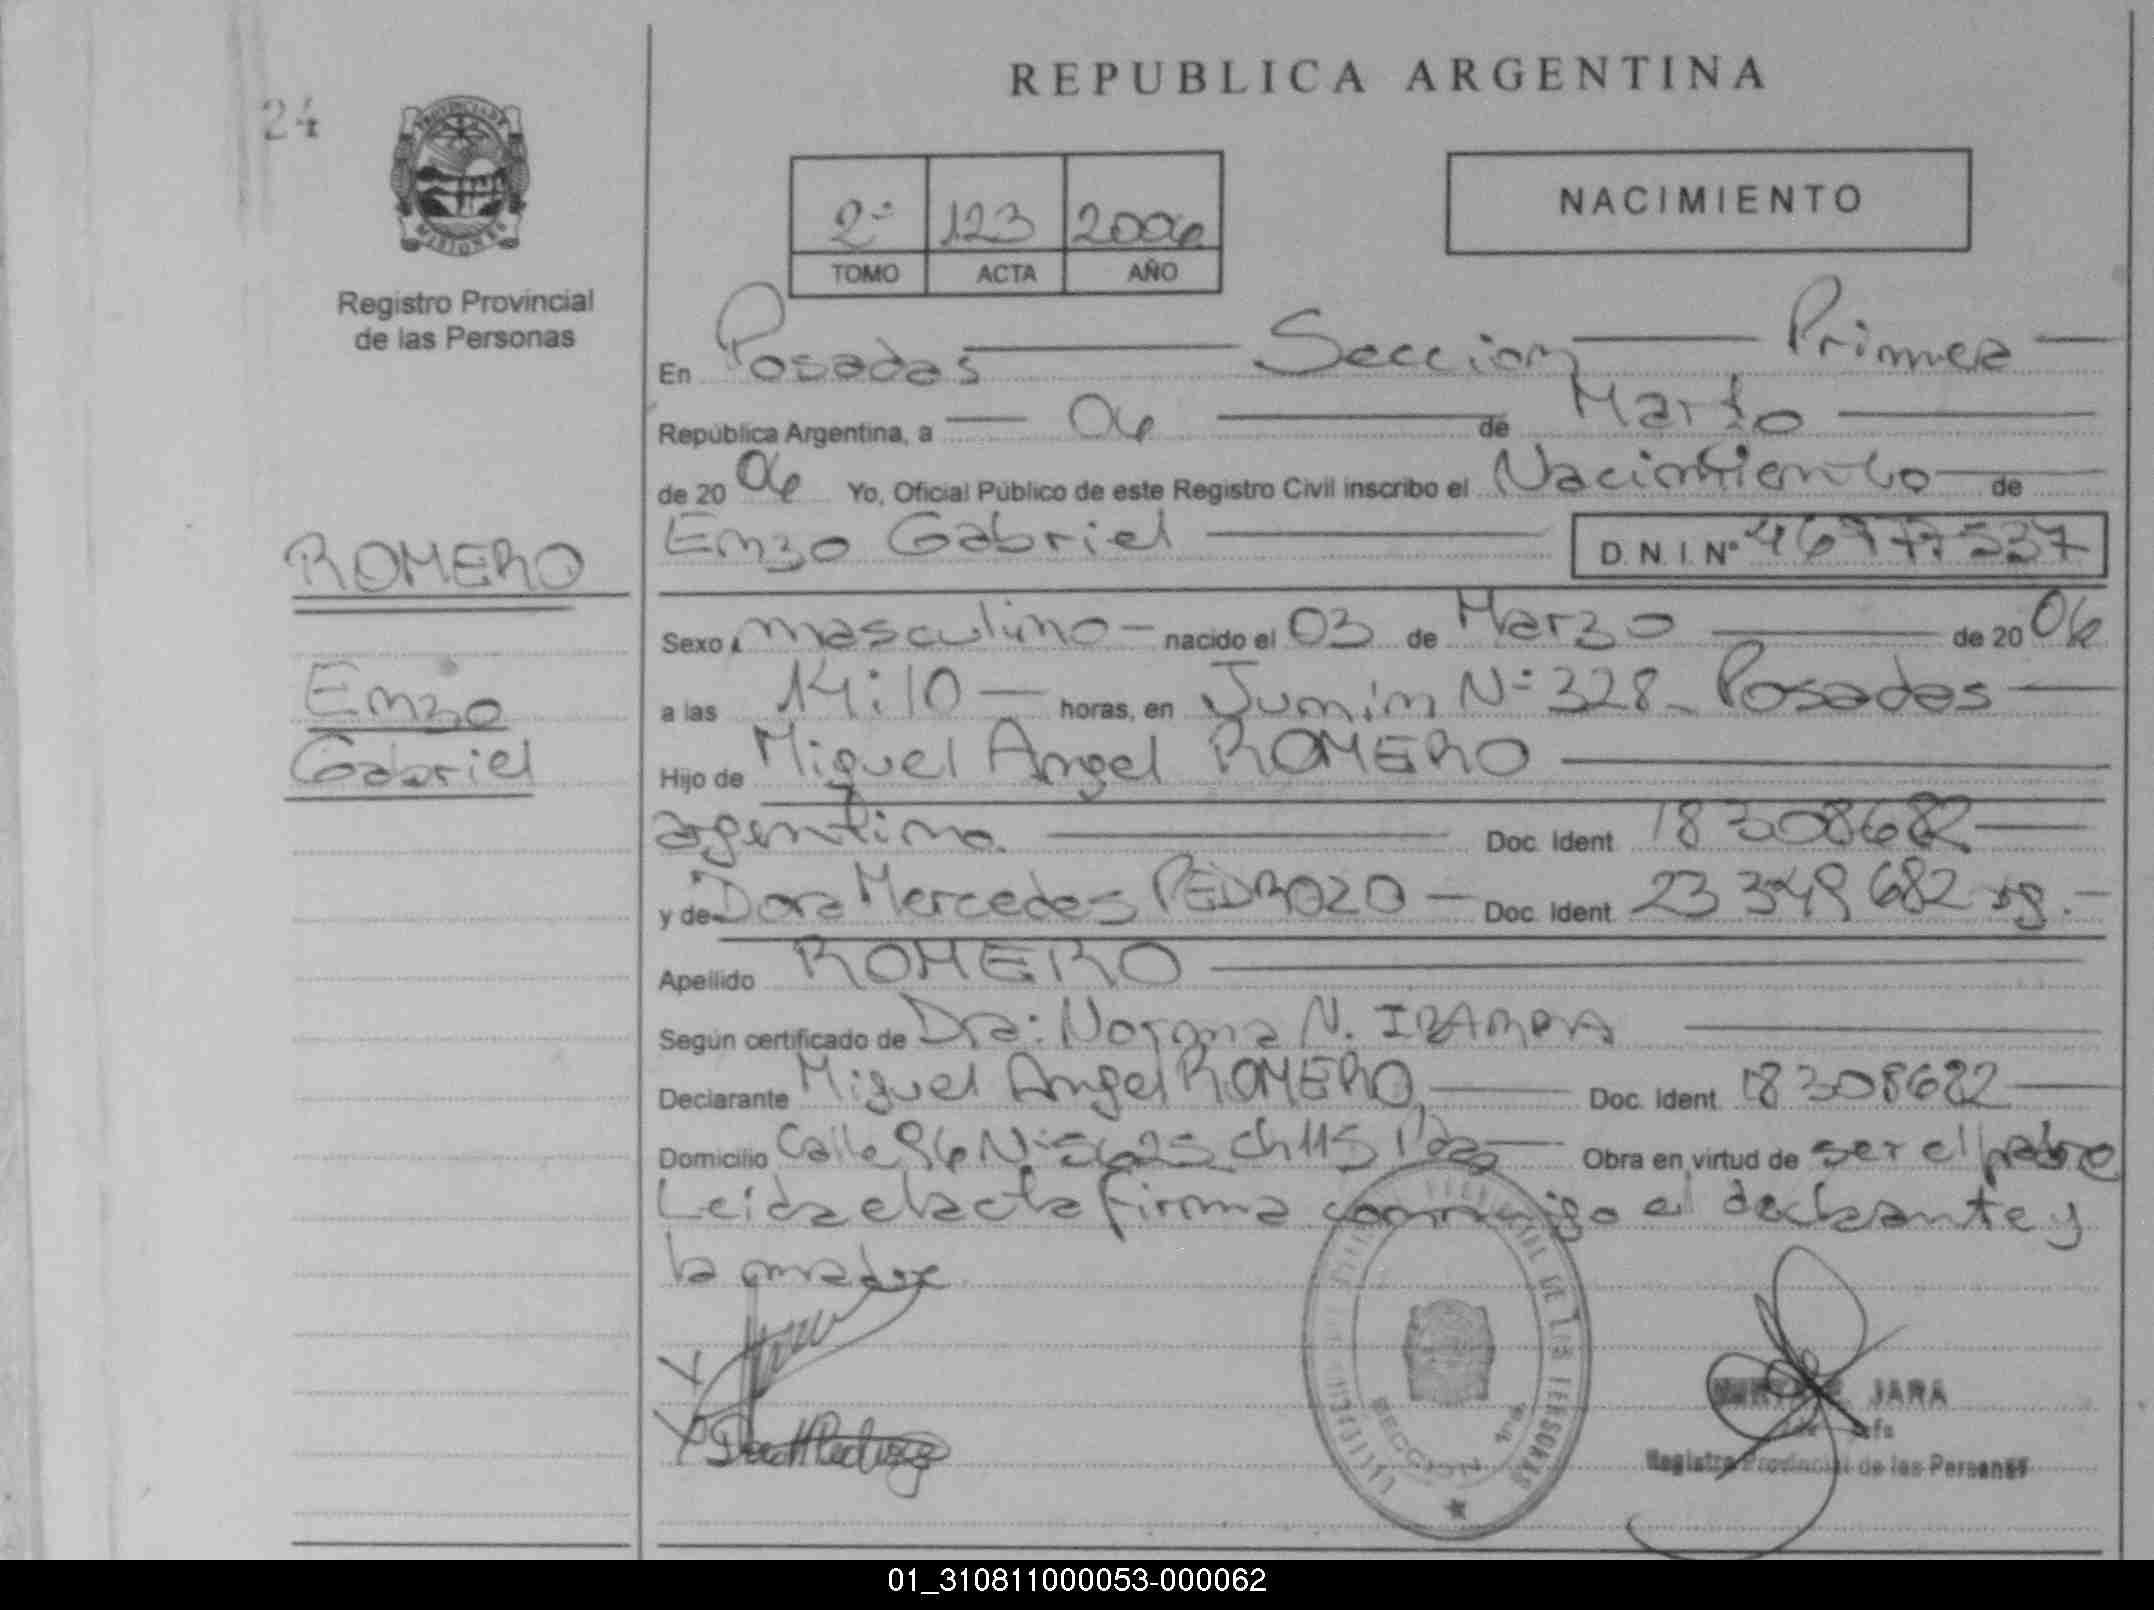 24
PROVINCIA DE
MISIONES
Registro Provincial
de las Personas
ROMERO
Enzo
Gabriel
REPUBLICA ARGENTINA
2º 123 2006
TOMO ACTA AÑO
NACIMIENTO
En Posadas Seccion Primera
República Argentina, a 06 de Marzo
de 2006 Yo, Oficial Público de este Registro Civil inscribo el Nacimiento de
Enzo Gabriel D.N.I. Nº 46977537
Sexo masculino nacido el 03 de Marzo de 2006
a las 14:10 horas, en Junin Nº 328 Posadas
Hijo de Miguel Angel ROMERO
argentino Doc. Ident 18308682
y de Dora Mercedes PEDROZO Doc. Ident 23 349 682 arg.
Apellido ROMERO
Según certificado de Dra: Norma N.
Declarante Miguel Angel ROMERO Doc. Ident 18308682
Domicilio Calle 96 Nº 5625 ch 115 Pdas Obra en virtud de ser el padre
Leida el acta firma conmigo el declarante y
la madre
SECCION 1ra
JARA
Registro Provincial de las Personas
01_310811000053-000062